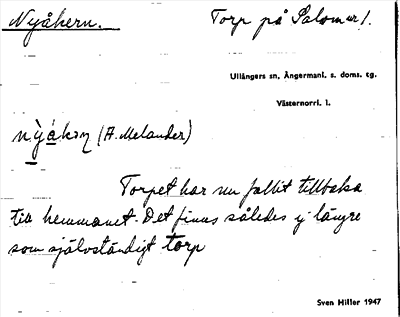 Nyåkern. Torp på Salomer 1.
Ullångers sn, Ångermanl. s. doms. tg.
Västernorrl. l.
nỳåkɜη (A. Melander)
Torpet har nu fallit tillbaka
till hemmanet. Det finns således ej längre
som självständigt torp
Sven Hiller 1947